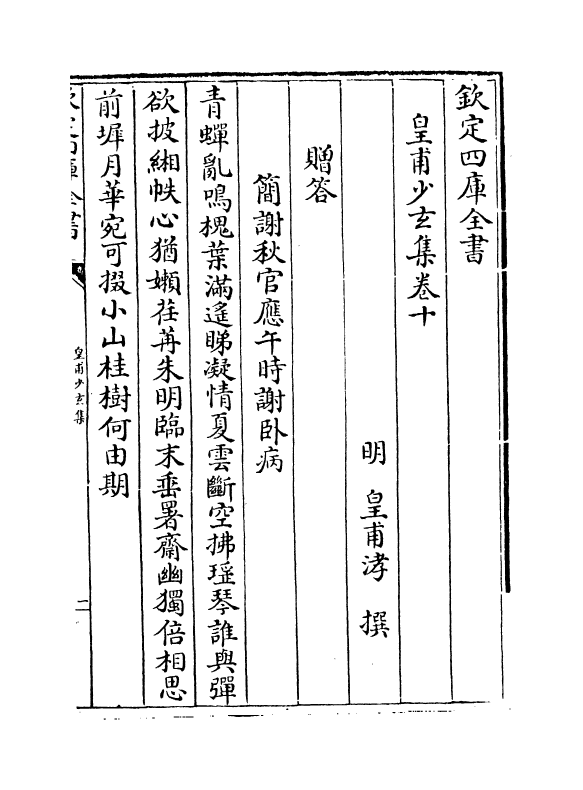 欽定四庫全書
皇甫少玄集卷十
明 皇甫涍 撰
贈答
簡謝秋官應午時謝卧病
青蟬亂鳴槐葉滿遙睇凝情夏雲斷空拂瑶琴誰與彈
欲披緗帙心猶嬾荏苒朱明臨末垂署齋幽獨倍相思
前墀月華宛可掇小山桂樹何由期
欽定四庫全書
皇甫少玄集